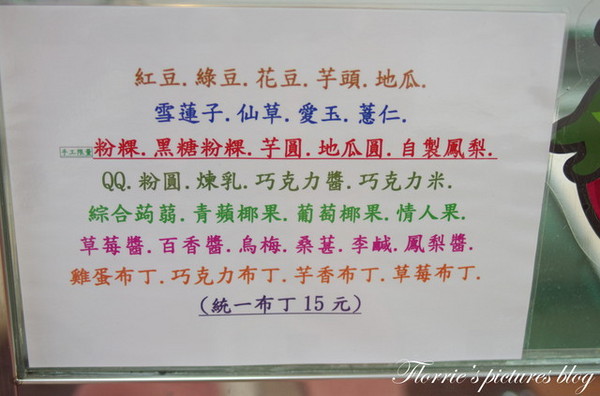 紅豆.綠豆.花豆.芋頭.地瓜.
雪蓮子.仙草.愛玉.薏仁.
手工限量粉粿.黑糖粉粿.芋圓.地瓜圓.自製鳳梨.
QQ.粉圓.煉乳.巧克力醬.巧克力米.
綜合蒟蒻.青蘋椰果.葡萄椰果.情人果.
草莓醬.百香醬.烏梅.桑葚.李鹹.鳳梨醬.
雞蛋布丁.巧克力布丁.芋香布丁.草莓布丁.
(統一布丁15元)
Florrie's pictures blog